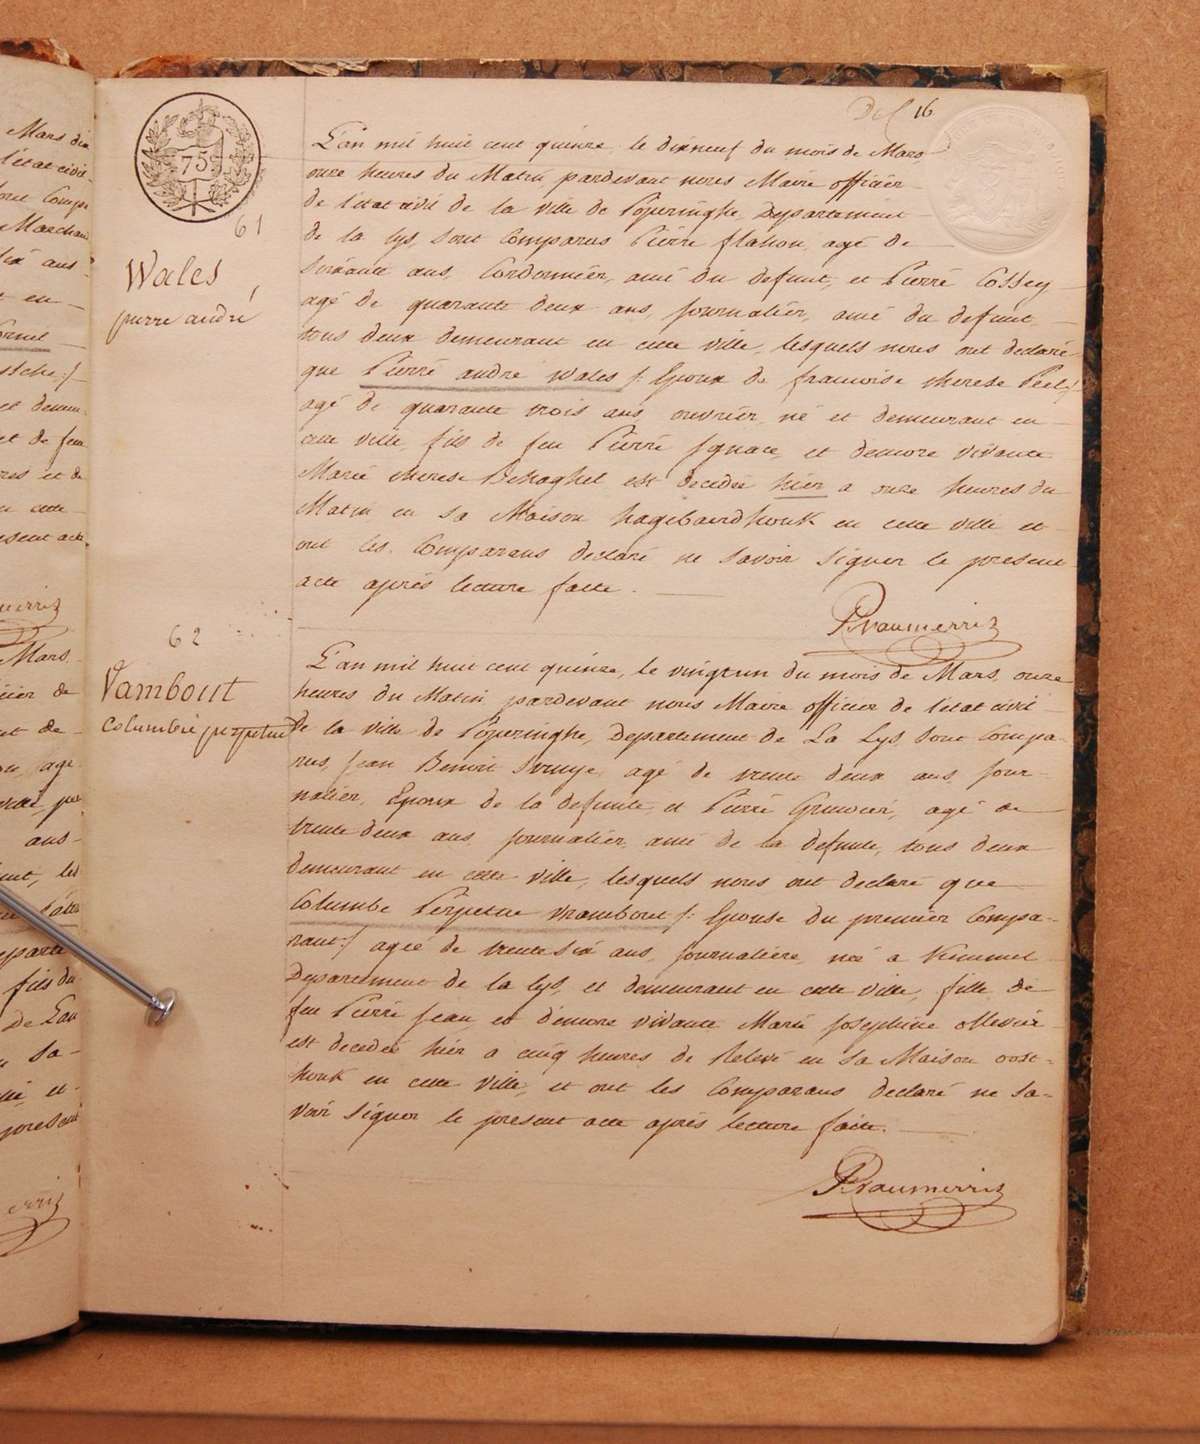 Del 16
75
61
Wales,
pierre andré
L'an mil huit cent quinze, le dixneuf du mois de Mars
onze heures du Matin, pardevant nous Maire officier
de l'état civil de la ville de Poperinghe, Departement
de la Lys, sont Comparus Pierre flahou, agé de
soixante ans, Cordonnier, ami du defunt, et Pierre Cossey
agé de quarante deux ans, journalier, ami du defunt,
tous deux demeurant en cette ville, lesquels nous ont declaré
que Pierre andré Wales /: Epoux de francoise therese
agé de quarante trois ans, ouvrier, né et demeurant en
cette ville, fils de feu Pierre Ignace, et d'encore vivante
Marie therese Behaghel est decedée hier a onze heures du
Matin en sa Maison hagebaerdhouk en cette ville et
ont les Comparans declaré ne savoir signer le present
acte aprés lecture faite.
62
Vambout
Columbe perpetue
L'an mil huit cent quinze, le vingtun du mois de Mars, onze
heures du Matin, pardevant nous Maire officier de l'état civil
de la ville de Poperinghe, Departement de La Lys, sont Compa-
rus, Jean Benoit Struye, agé de trente deux ans, jour-
nalier, Epoux de la defunte, et Pierre agé de
trente deux ans, journalier, ami de la defunte, tous deux
demeurant en cette ville, lesquels nous ont declaré que
Columbe Perpetue Vrambout /: Epouse du premier Compa-
rant :/ ageé de trente six ans, journaliere, neé a Kemmel
Departement de la Lys, et demeurant en cette ville, fille de
feu Pierre Jean, et d'encore vivante Marie Josephine ollevier
est decedeé hier a cinq heures de Relevé en sa Maison oost-
houk en cette ville, et ont les Comparans declaré ne sa-
voir signer le present acte aprés lecture faite.